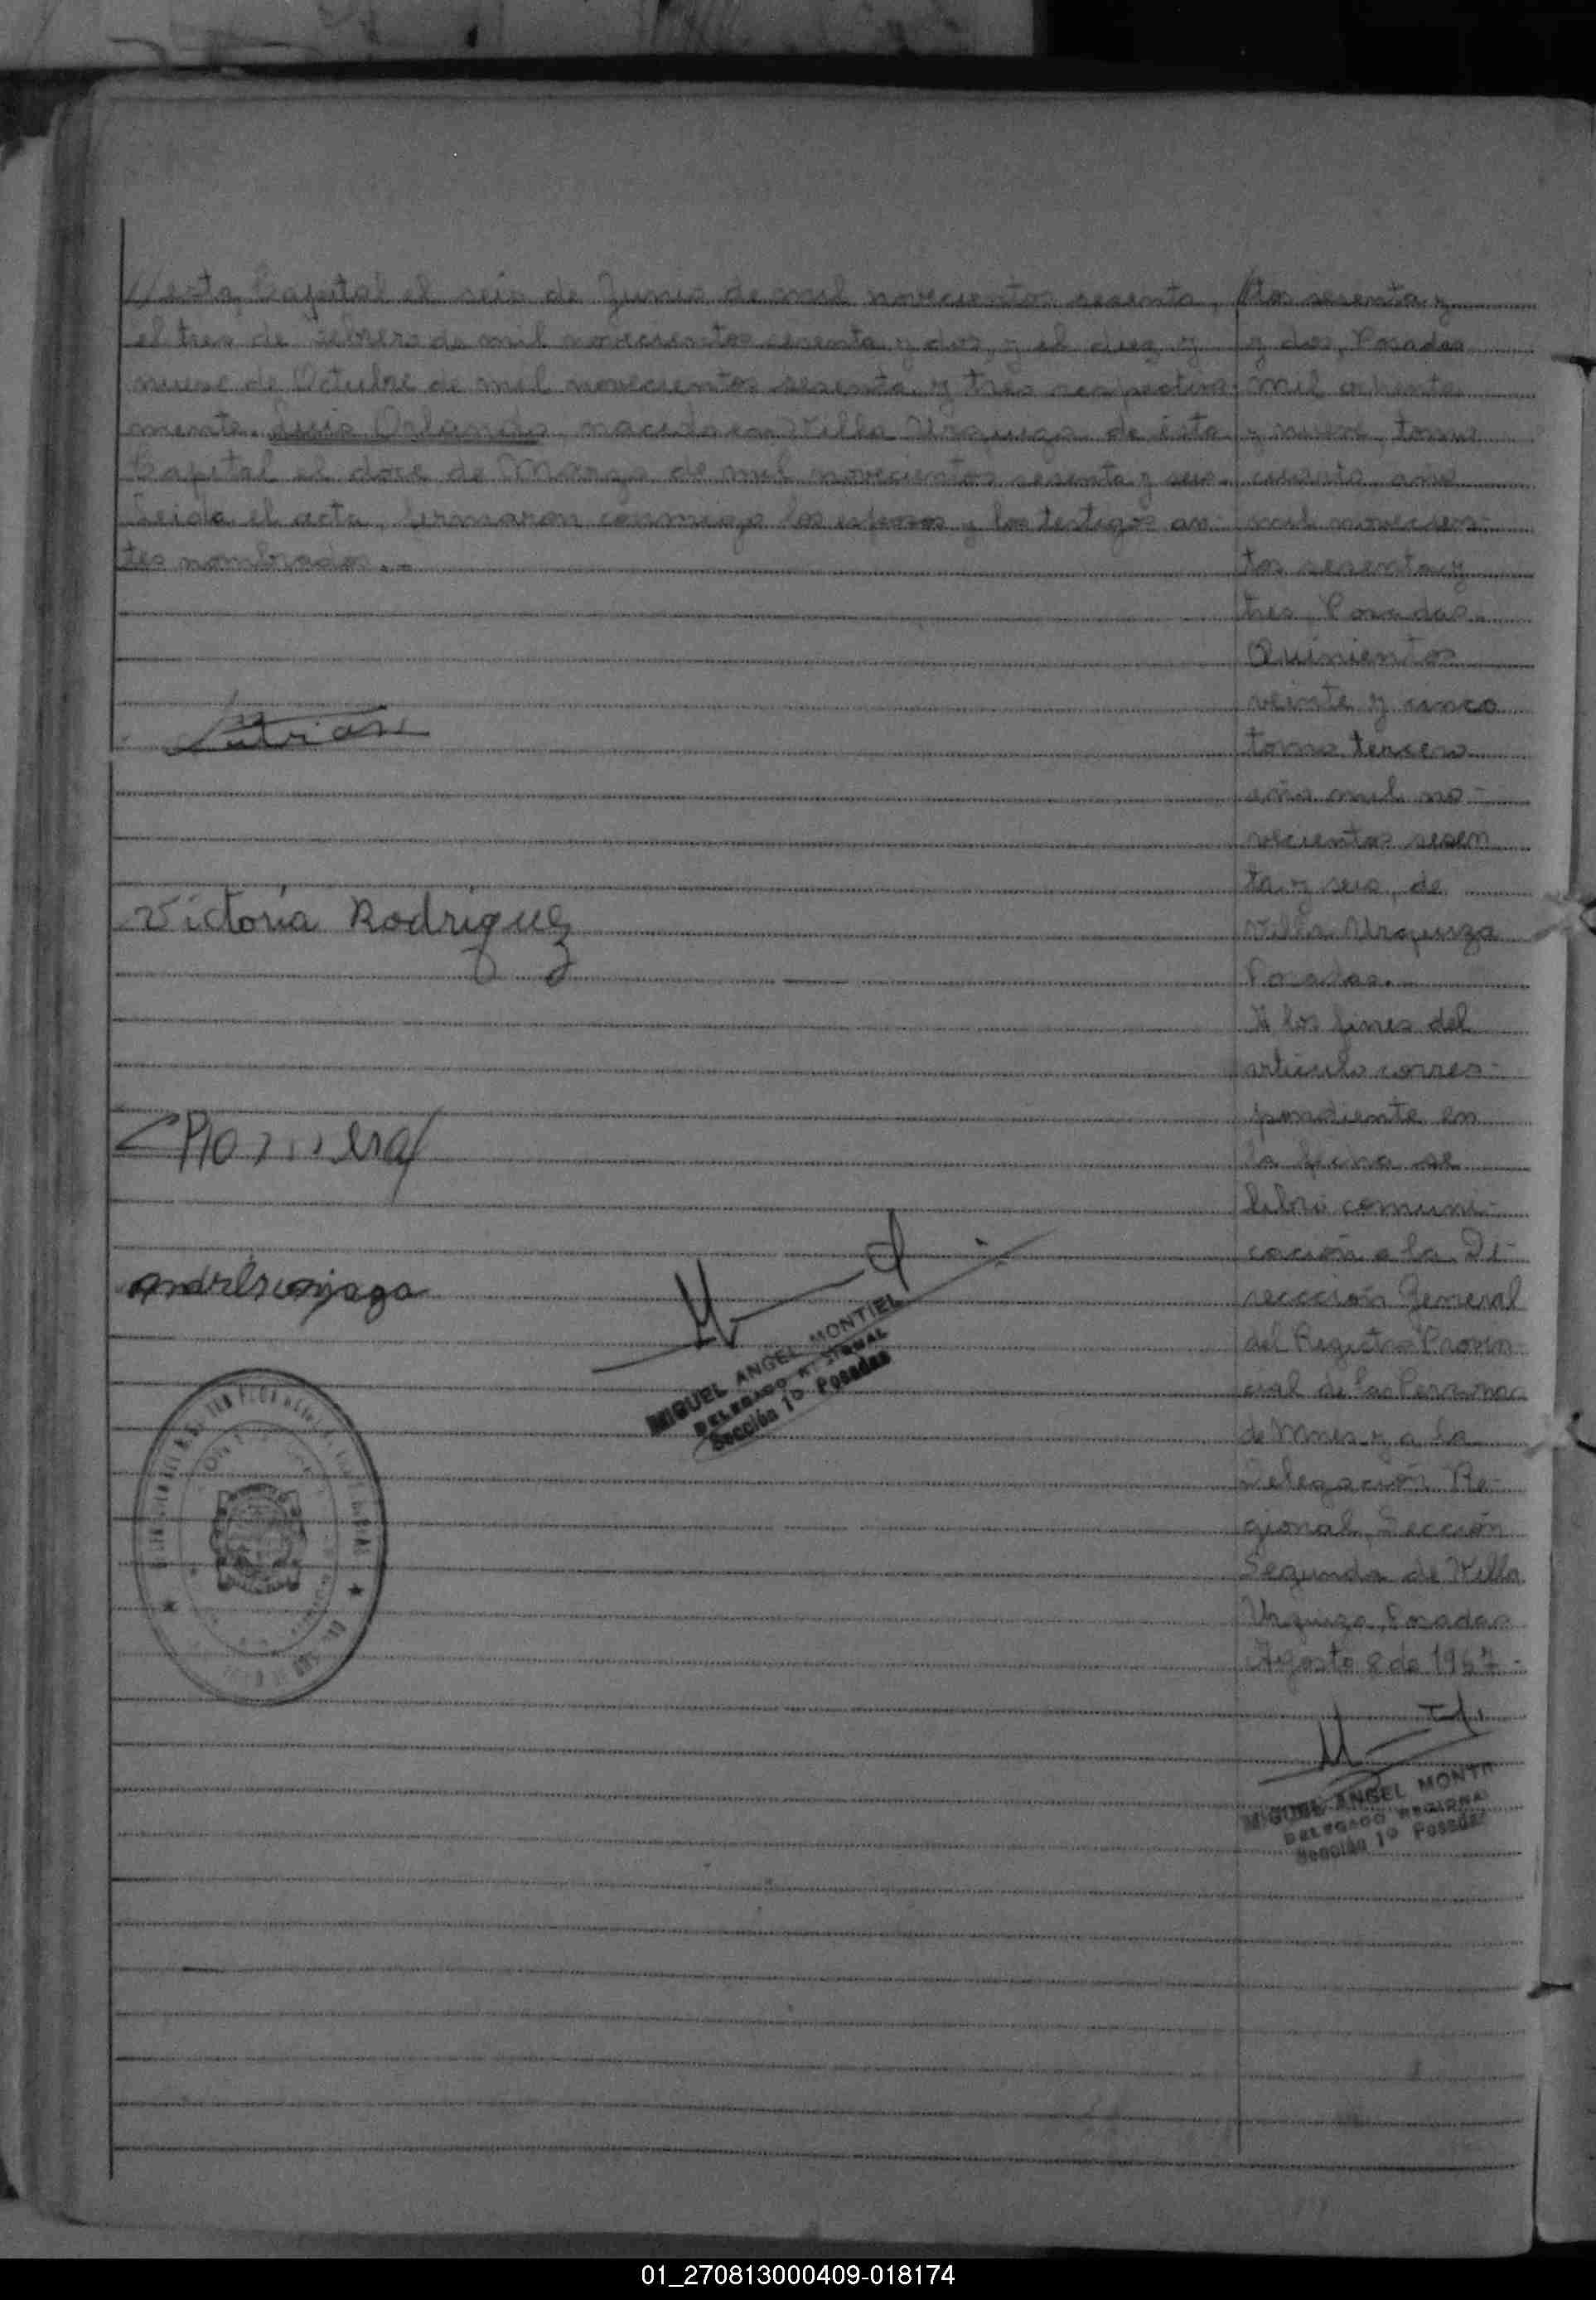 //esta Capital el seis de Junio de mil novecientos sesenta,
el tres de Febrero de mil novecientos sesenta y dos, y el diez y
nueve de Octubre de mil novecientos sesenta y tres respectiva-
mente. Luis Orlando, nacido en Villa Urquiza de ésta
Capital el doce de Marzo de mil novecientos sesenta y seis.
Leida el acta, firmaron conmigo los esposos y los testigos an-
tes nombrados..-
Victoria Rodriguez
MIGUEL ANGEL MONTIEL
DELEGADO REGIONAL
Sección 1º Posadas
tos sesenta y
y dos, Posadas
mil ochenta
y nueve, tomo
cuarto, año
mil novecien-
tos sesenta y
tres Posadas.
Quinientos
veinte y cinco
tomo tercero
año mil no-
vecientos sesen
ta y seis, de
Villa Urquiza
Posadas.
A los fines del
artículo corres-
pondiente en
la fecha se
libró comuni-
cación a la Di-
rección General
del Registro Provin
cial de las Personas
de Mnes y a la
Delegación Re-
gional, Sección
Segunda de Villa
Urquiza, Posadas
Agosto 8 de 1967-
MIGUEL ANGEL MONTI
DELEGADO REGIONAL
Sección 1º Posadas
01_270813000409-018174